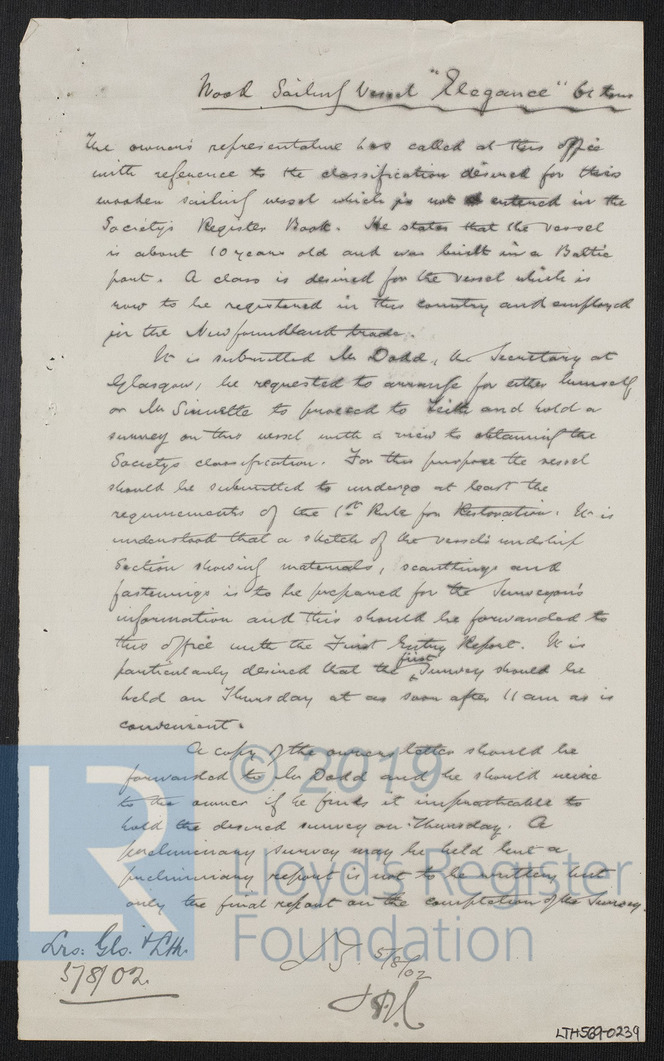 Wood Sailing Vessel "Elegance" 61 tons
The owner's representative has called at this office
with reference to the classification desired for this
wooden sailing vessel which is not entered in the
Society's Register Book. He states that the vessel
is about 10 years old and was built in a Baltic
port. A class is desired for the vessel which is
now to be registered in this country and employed
in the Newfoundland trade.
It is submitted Mr Dodd, the Secretary at
Glasgow, be requested to arrange for either himself
or Mr Sinnette to proceed to Leith and hold a
survey on this vessel with a view to obtaining the
Society's classification. For this purpose the vessel
should be submitted to undergo at least the
requirements of the 1st Rule for Restoration. It is
understood that a sketch of the vessel's midship
Section showing materials, scantlings and
fastenings is to be prepared for the Surveyor's
information and this should be forwarded to
this office with the First Entry Report. It is
particularly desired that the first Survey should be
held on Thursday at as soon after 11 am as is
convenient.
A copy of the owners letter should be
forwarded to Mr Dodd and he should write
to the owner if he finds it impracticable to
hold the desired survey on Thursday. A
preliminary survey may be held but a
preliminary report is not to be written but
only the final report on the completion of the Survey.
Lrs: Gls. & Lth.
5/8/02.
5/8/02
© 2019
Lloyd's Register
Foundation
LR
LTH569-0239